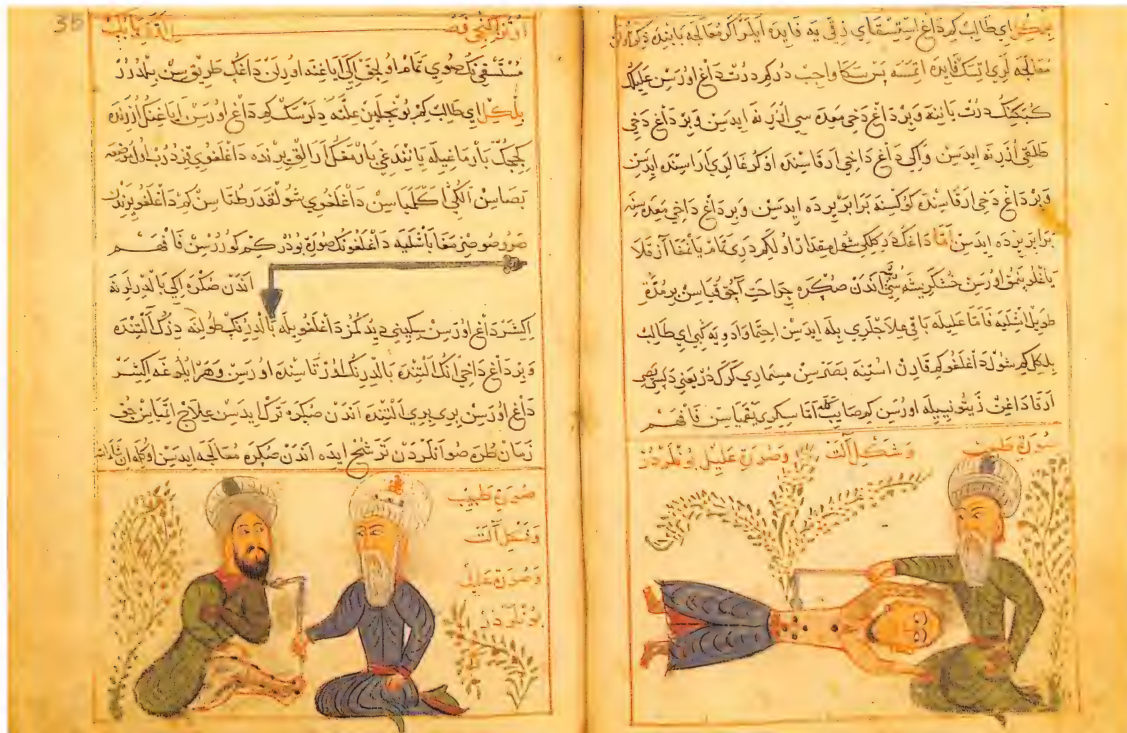 بلكل اي طالب كم داغ استسقاي زقي يه فايده ايلر اكر معالجه بابنده
معالجه لري اتسك فايده اتمسه پس سكا واجب در كم درت داغ اورسن عليلك
كبكنك درت ياننه و بر داغ دخي معده سي اذرنه ايدسن و بر داغ دخي
طلقي اذرنه ايدسن و اكي داغ داخي ارقاسنده اوكرغالري اراسنده ايدسن
و بر داغ دخي ارقاسنده كوكسنه برابر يرده ايدسن و بر داغ داخي معده سنه
برابر يرده ايدسن اما داغك دركلكي شول مقدار اولا كم دري تمام يانغا آز قلا
اورسن اندن صكره جراحت آچق قياسن بر مدت
طويل اشليه فاما عليله باقي علاجلري بله ايدسن احتما و ادويه كبي اي طالب
بلكل كم شول داغلغو كم قارن استنه بصرسن مسماري كرك در يعني
ارقا داغن زيتونيبله اورسن كم صاب
فافهم
صورة طبيب و شكل آلت و صورة عليل بونلردر
35
مستسقي نك صوي تمام اولجق اكي اياغنه اورلن داغك طريقن سن بلدرر
بلكل اي طالب كم بونجلين علته دلرسك كم داغ اورسن اياغنك اذرنده
كجيك بارماغيله ياننده غي بارمغك ارالق يرنده داغلغوي
بصاسن داغلغوي شولقدر طتاسن كم داغلغو يرندن
صورو صو صزمغا باشليه داغلغونك صورة بودر كم كورسن فافهم
اندن صكره اكي بالدرلرنه
اكيشر داغ اورسن سكيني ديدكمز داغلغو بله بالدرنك طولنه ديزك آلتنده
و بر داغ داخي انك آلتنده بالدرنك اورتاسنده اورسن و هر بلدغه اكيشر
داغ اورسن بري بري آلتنده اندن صكره ترك ايدسن علاج اتمياسن چق
زمان طره صو آنلردن ترشح ايده اندن صكره معالجه ايدسن
صورة طبيب
و شكل آلت
و صورة عليل
بونلردر